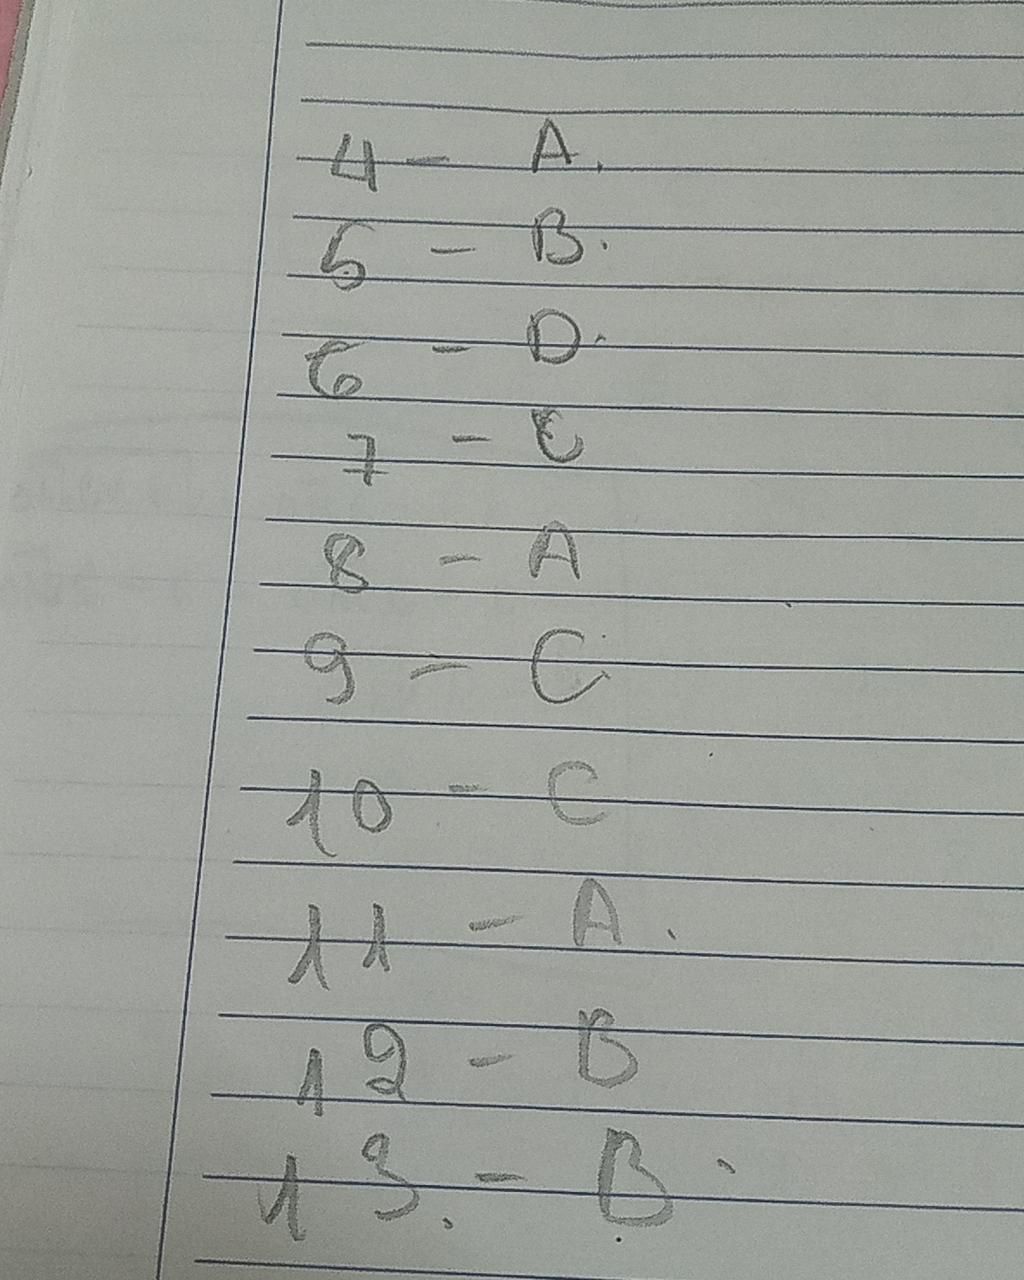 4 - A.
5 - B.
6 - D.
7 - C
8 - A
9 - C.
10 - C
11 - A.
12 - B
13. - B.